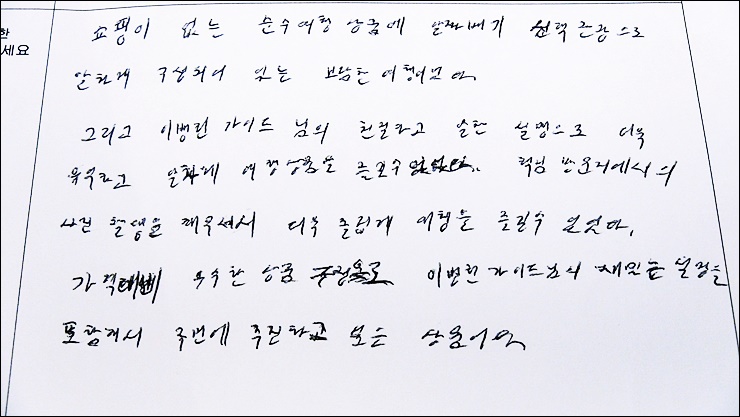 한
세요
쇼핑이 없는 순수여행 상품에 알짜배기 선택관광으로
알차게 구성되어 있는 보람찬 여행이었다.
그리고 이병헌 가이드 님의 친절하고 설명으로 더욱
유익하고 알차게 여행상품을 즐길수 있었다.
사진 촬영을 해주셔서 더욱 즐겁게 여행을 즐길수 있었다.
가격대비 우수한 상품 가이드님의 재밌는 설명을
포함해서 주변에 추천하고 싶은 상품이다.